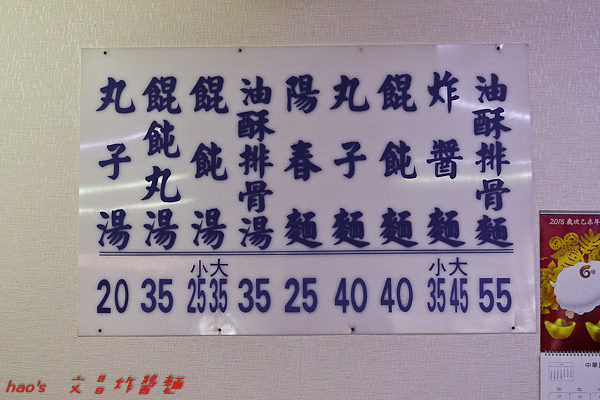 油酥排骨麵
炸醬麵
餛飩麵
丸子麵
陽春麵
油酥排骨湯
餛飩湯
餛飩丸湯
丸子湯
小大 小大
20 35 25 35 35 25 40 40 35 45 55
2015 歲次乙未年
hao's 文昌炸醬麵